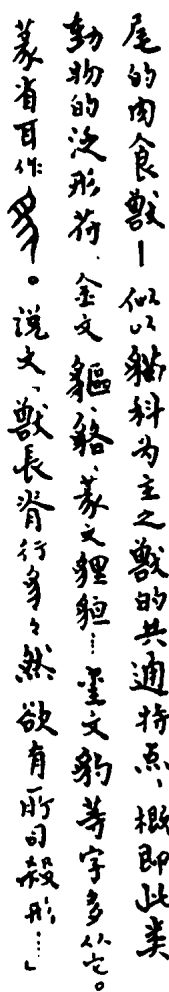 尾的肉食獸—似以貓科为主之獸的共通特点，概即此类
動物的泛形符．金文貙、貉、篆文貍貆…璽文豹等字多从它。
篆省耳作豸。说文「獸長脊行豸豸然欲有所司殺形…」